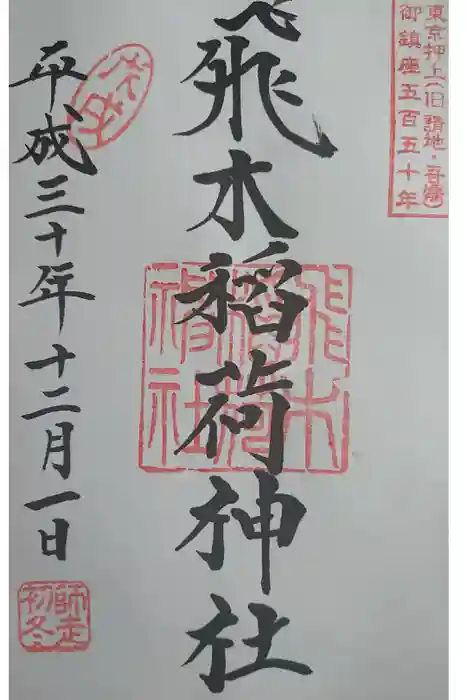 東京押上(旧 請地・吾嬬)
御鎮座五百五十年
飛木稲荷神社
飛木
稲荷
神社
平成三十年十二月一日
師走
初冬